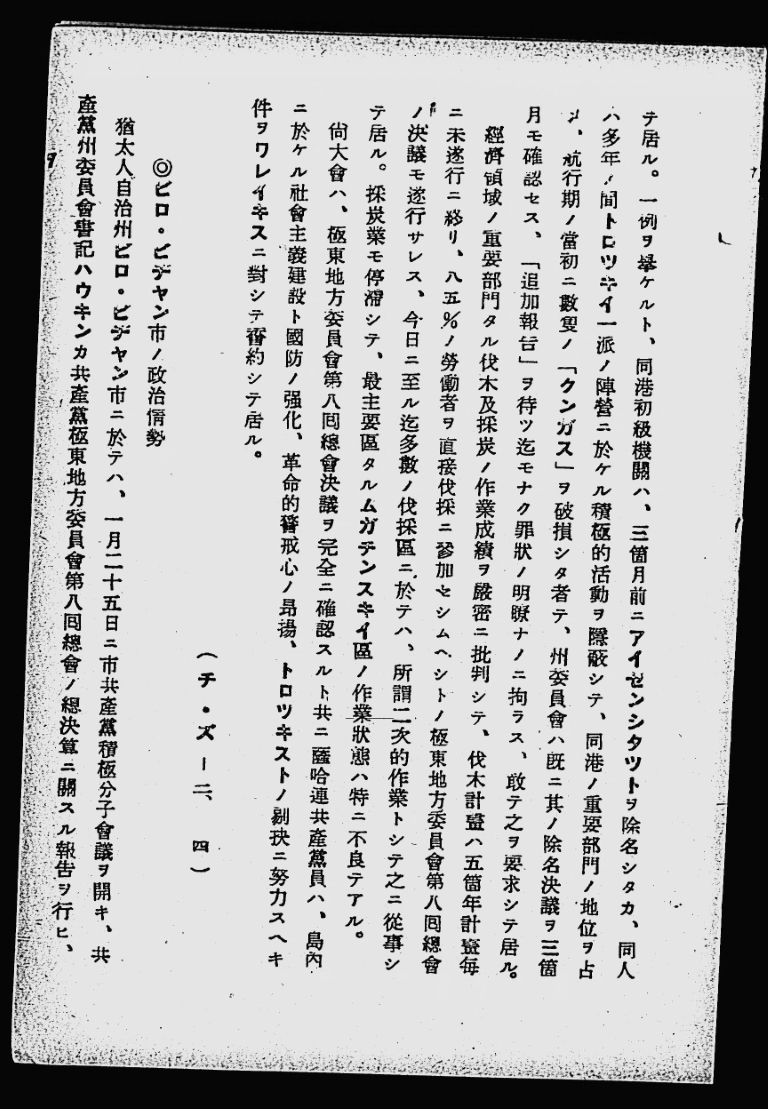 テ居ル。一例ヲ擧ケルト、同港初級機關ハ、三箇月前ニアイゼンシタツトヲ除名シタカ、同人
ハ多年ノ間トロツキイ一派ノ陣營ニ於ケル積極的活動ヲ隱蔽シテ、同港ノ重要部門ノ地位ヲ占
メ、航行期ノ當初ニ數隻ノ「クンガス」ヲ破損シタ者テ、州委員會ハ既ニ其ノ除名決議ヲ三箇
月モ確認セス、「追加報告」ヲ待ツ迄モナク罪狀ノ明瞭ナノニ拘ラス、敢テ之ヲ要求シテ居ル。
經濟領域ノ重要部門タル伐木及採炭ノ作業成績ヲ嚴密ニ批判シテ、伐木計畫ハ五箇年計畫每
ニ未遂行ニ終リ、八五％ノ勞働者ヲ直接伐採ニ參加セシムヘシトノ極東地方委員會第八回總會
ノ決議モ遂行サレス、今日ニ至ル迄多數ノ伐採區ニ於テハ、所謂二次的作業トシテ之ニ從事シ
テ居ル。採炭業モ停滯シテ、最主要區タルムガチンスキイ區ノ作業狀態ハ特ニ不良テアル。
尙大會ハ、極東地方委員會第八回總會決議ヲ完全ニ確認スルト共ニ薩哈連共產黨員ハ、島內
ニ於ケル社會主義建設ト國防ノ强化、革命的警戒心ノ昂揚、トロツキストノ剔抉ニ努力スヘキ
件ヲワレイキスニ對シテ誓約シテ居ル。
（チ・ズ―二、四）
◎ビロ・ビヂヤン市ノ政治情勢
猶太人自治州ビロ・ビヂヤン市ニ於テハ、一月二十五日ニ市共產黨積極分子會議ヲ開キ、共
產黨州委員會書記ハウキンカ共產黨極東地方委員會第八回總會ノ總決算ニ關スル報告ヲ行ヒ、